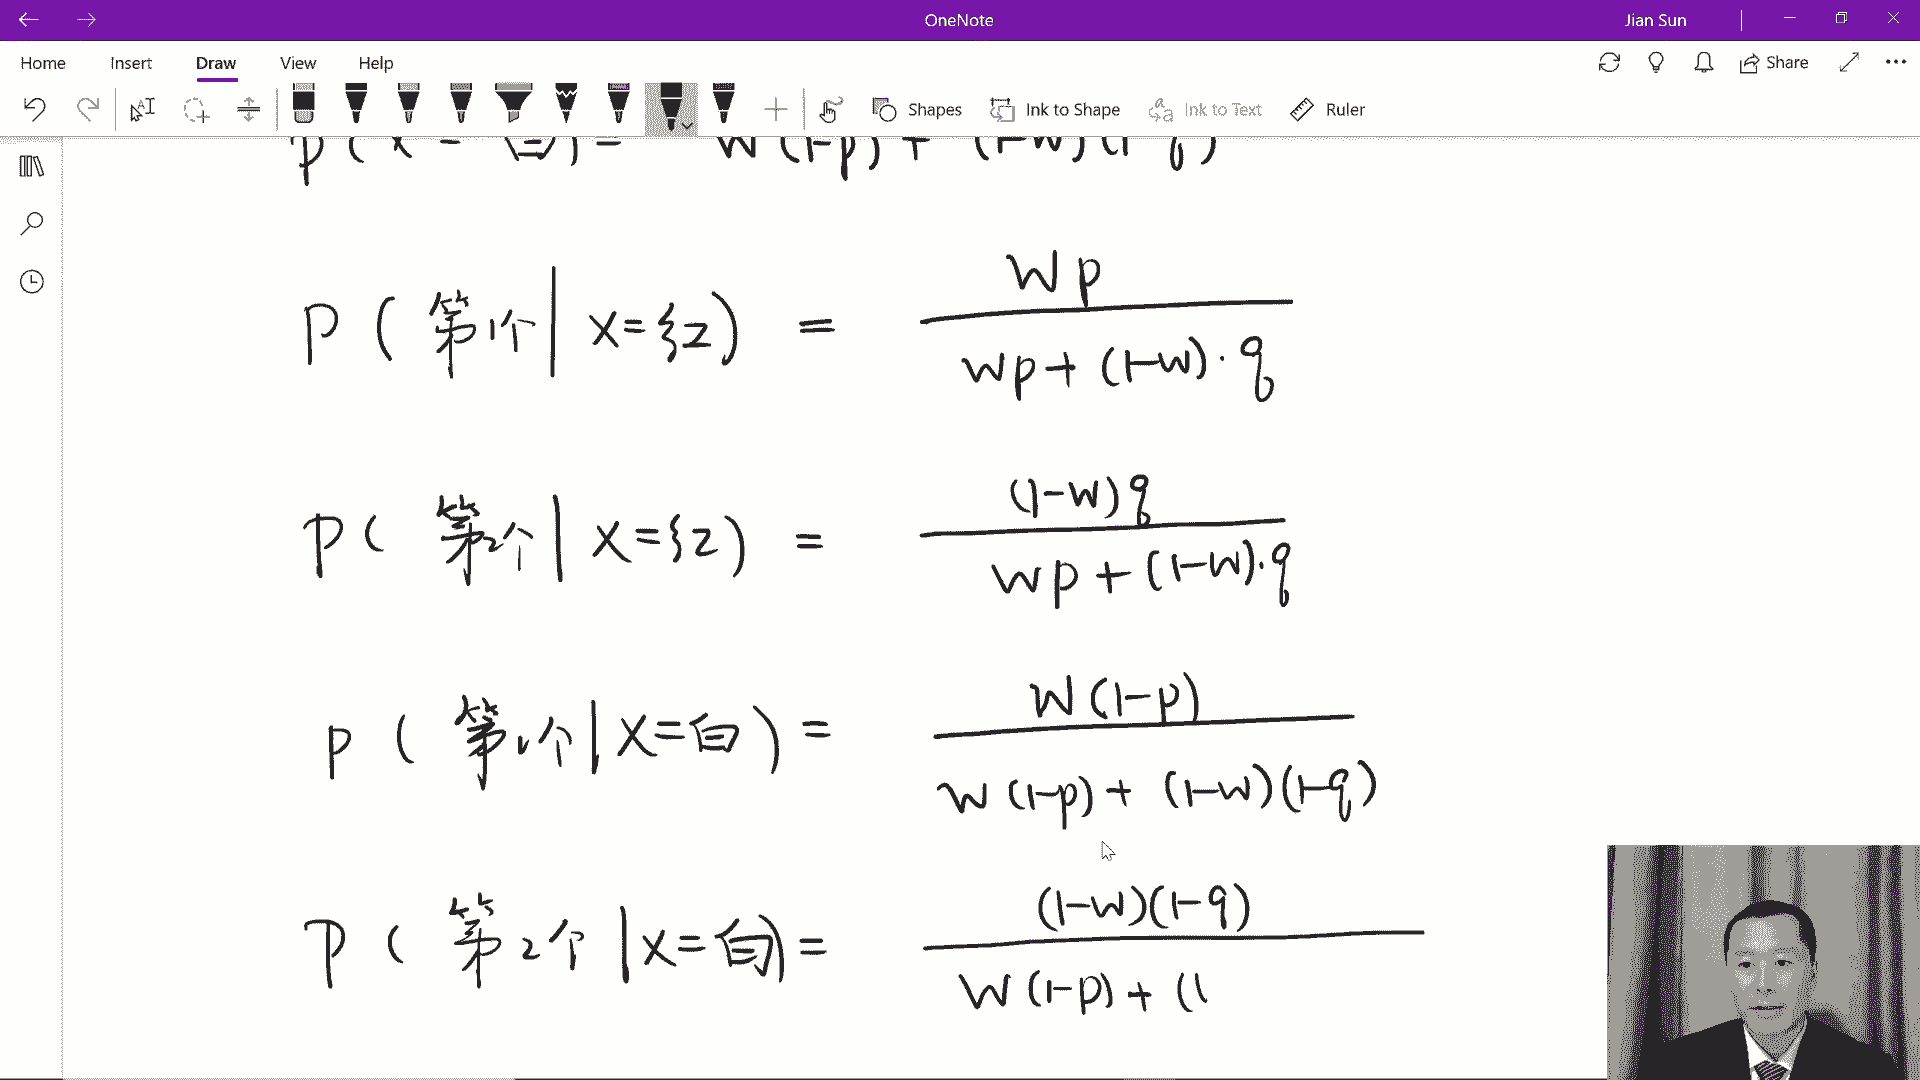 OneNote
Jian Sun
Home Insert Draw View Help
Share
Shapes Ink to Shape Ink to Text Ruler
P(X=白)= W(1-p)+(1-w)(1-q)
P(第1个|X=红) = Wp / (wp+(1-w)·q)
P(第2个|X=红) = (1-w)q / (wp+(1-w)·q)
P(第1个|X=白) = W(1-p) / (W(1-p)+(1-w)(1-q))
P(第2个|X=白) = (1-w)(1-q) / (W(1-p)+(1